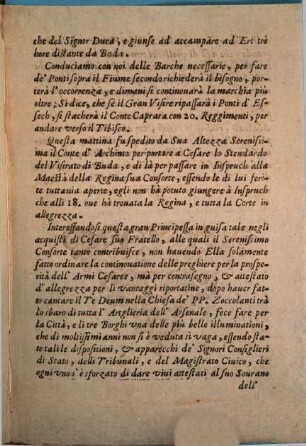 che del Signor Duca, e giunse ad accampare ad Ert trè
hore distante da Buda.
Conduciamo con noi delle Barche necessarie, per fare
de' Ponti sopra il Fiume secondo richiederà il bisogno, por-
terà l'occorrenza, e dimani si continouarà la marchia più
oltre; Si dice, che se il Gran Visire ripassarà i Ponti d' Es-
sech, si staccherà il Conte Caprara con 20. Reggimenti, per
andare verso il Tibisco.
Questa mattina fu spedito da Sua Altezza Serenissi-
ma il Conte d' Archinto per portare a Cesare lo Stendardo
del Visirato di Buda, e di là per passare in Inspruch alla
Maestà della Regina sua Consorte, essendo le di lui feri-
te tuttauia aperte, egli non hà potuto giungere à Inspruch
che alli 18. oue hà trouata la Regina, e tutta la Corte in
allegrezza.
Interessandosi questa gran Principessa in guisa tale negli
acquisti di Cesare suo Fratello, alle quali il Serenissimo
Consorte tanto contribuisce, non hauendo Ella solamente
fatto ordinare la continouatione delle preghiere per la prospe-
rità dell' Armi Cesaree, mà per contrasegno, & attestato
d' allegrezza per li vantaggi riportatine, dopo hauer fat-
to cantare il Te Deum nella Chiesa de' PP. Zoccolanti trà
lo sbaro di tutta l' Artglieria dell' Arsenale, fece fare per
la Città, e li tre Borghi vna delle più belle illuminationi,
che di moltissimi anni non si è veduta sì vaga, essendo sta-
te tali le dispositioni, & apparecchi de' Signori Consiglieri
di Stato, delli Tribunali, e del Magistrato Ciuico, che
ogni vno s' è sforzato di dare viui attestati al suo Sourano
dell'